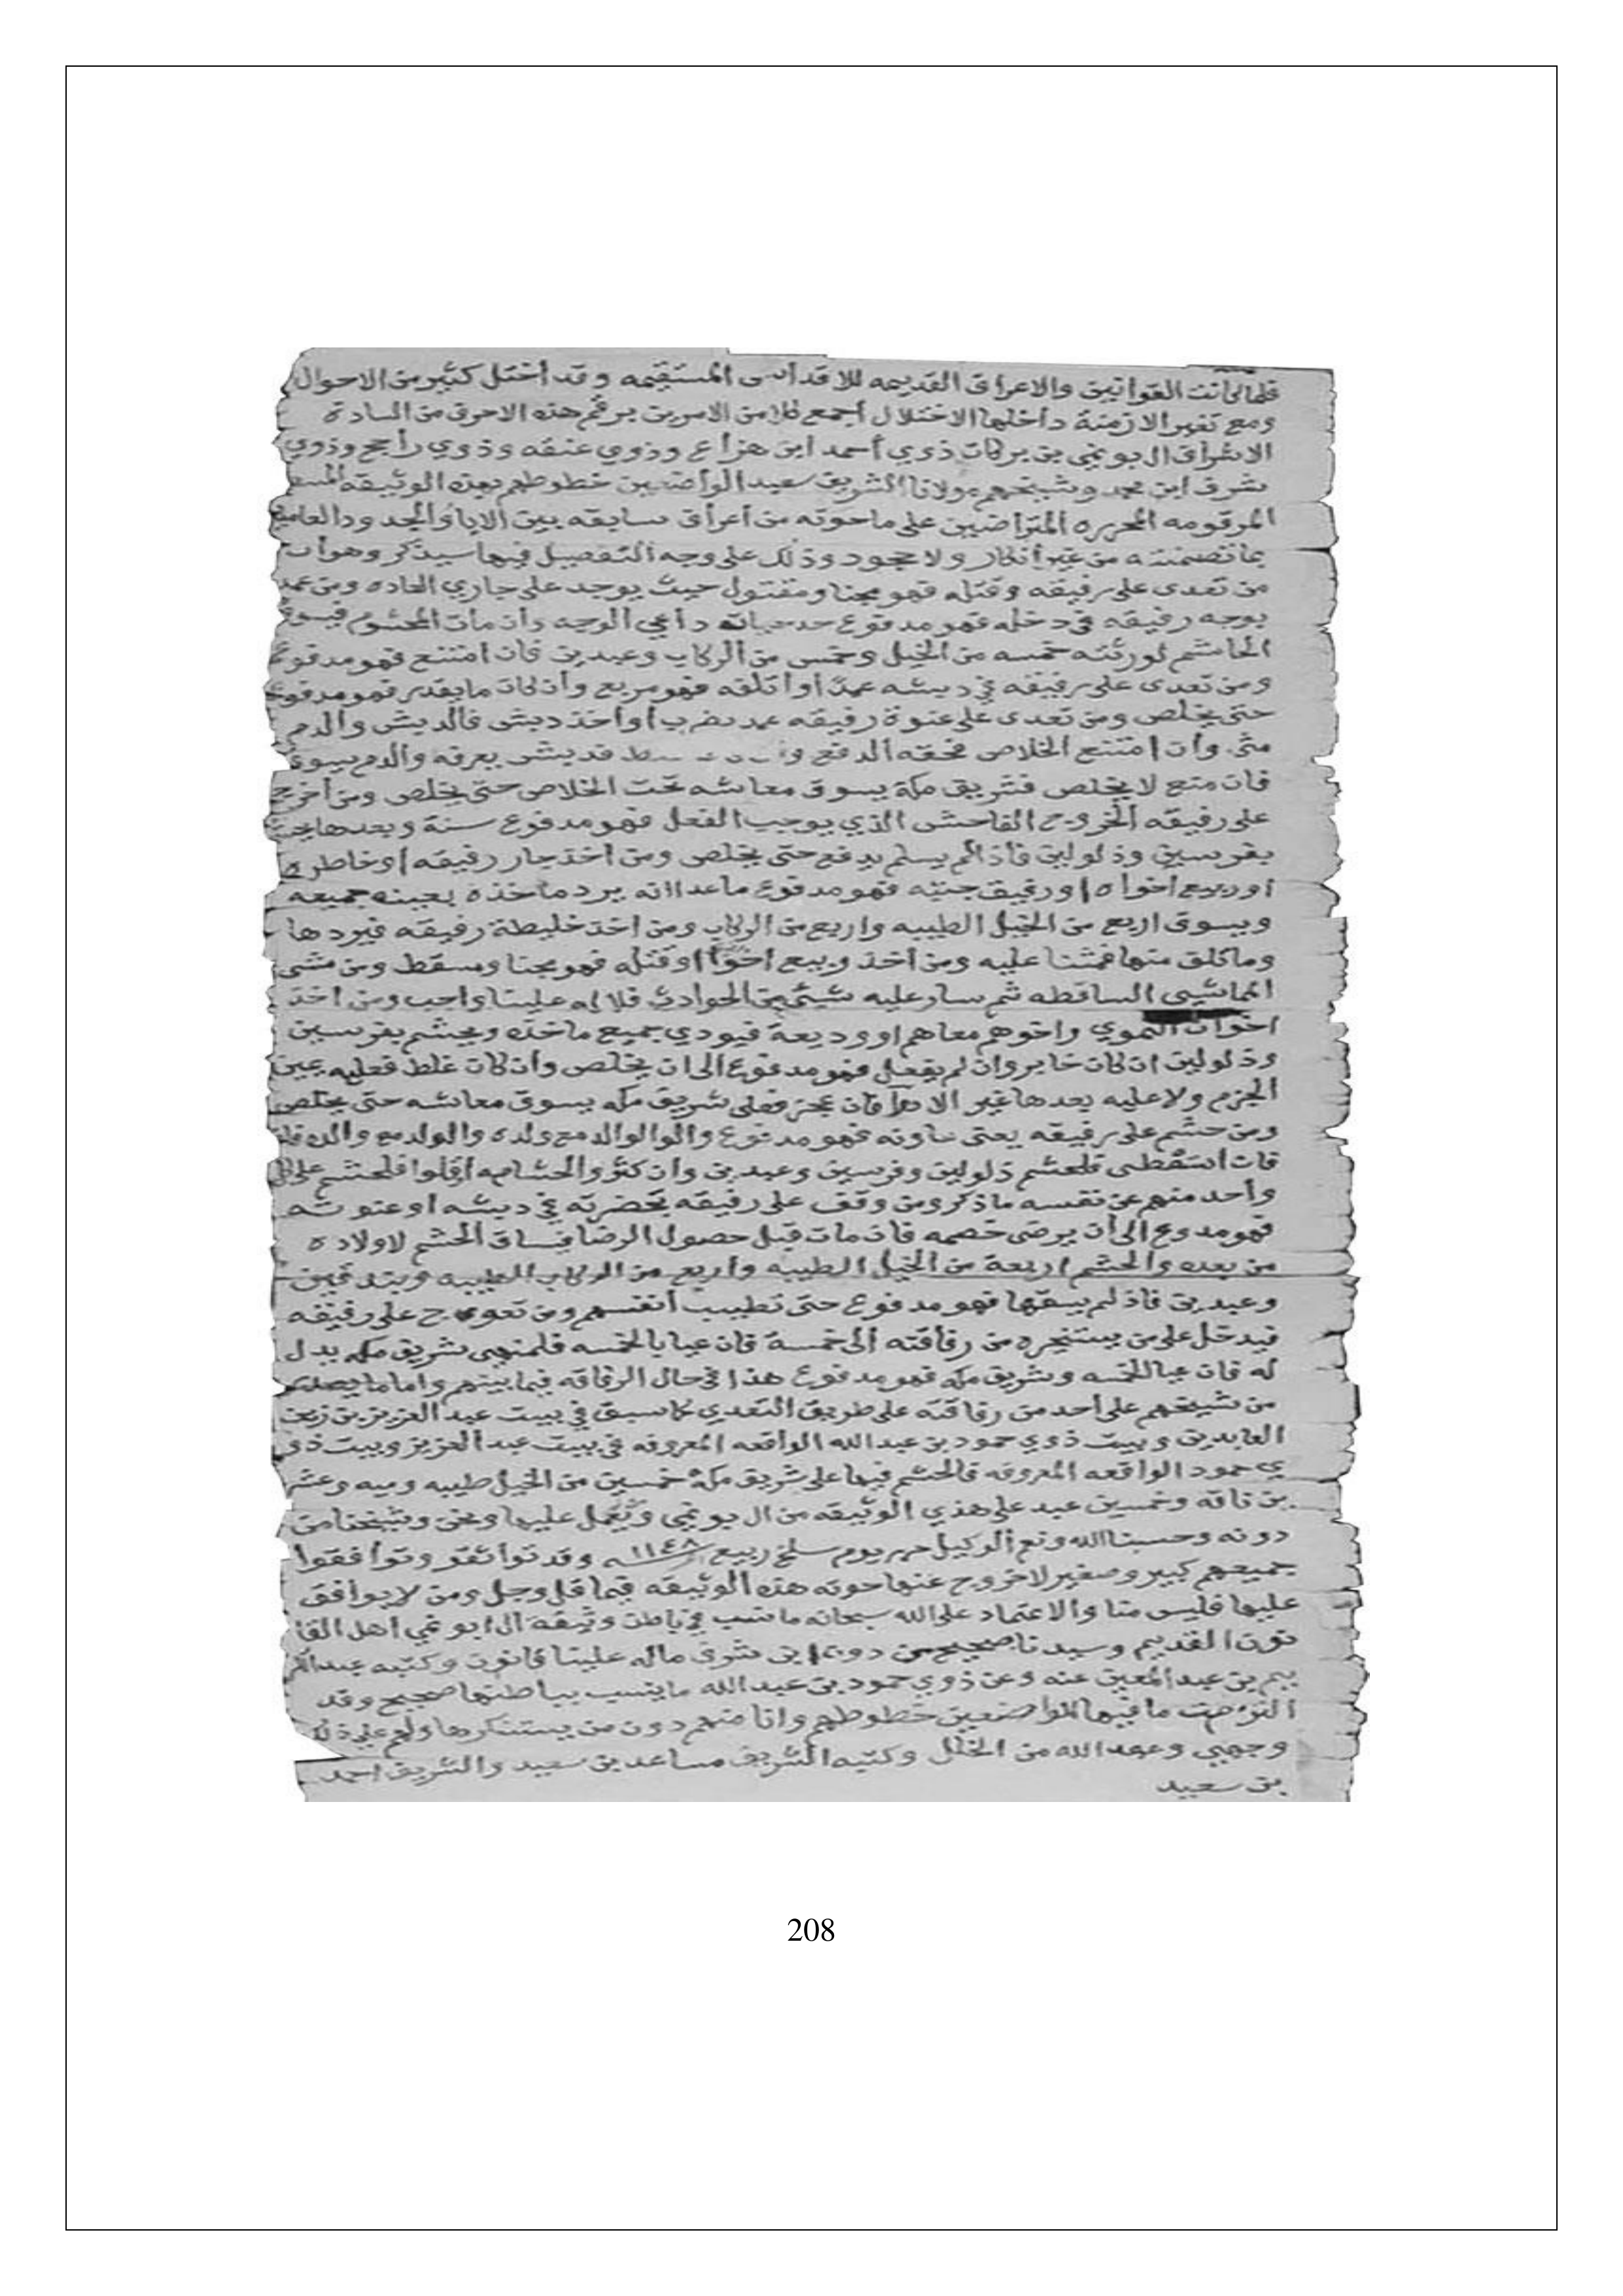 فلما كانت القوانين والاعراف القديمه للاقدامى المستقيمه وقد أختل كثير من الاحوال
ومع تغير الازمنة داخلها الاختلال أجمع من الامرين برقم هذه الاحرف من السادة
الاشراف ال بو نمي بن بركات ذوي أحمد ابن هزاع وذوي عنقه وذوي راجح وذوي
شرف ابن محمد وشيخهم مولانا الشريف سعيد الواضعين خطوطهم بهذه الوثيقه
المرقومه المحرره المتراضين على ما حوته من أعراف سابقه بين الابا والجدود
بما تضمنته من غير أنكار ولا جحود وذلك على وجه التفصيل فيها سيذكر وهو أن
من تعدى على رفيقه وقتله فهو مجنا ومقتول حيث يوجد على جاري العاده ومن
بوجه رفيقه في دخله فهو مدفوع حد حياته داعي الوجه وأن مات المحشوم فيسوق
الحاشم لورثته خمسه من الخيل وخمس من الركاب وعبدين فان امتنع فهو مدفوع
ومن تعدى على رفيقه في دبشه عمدً أو أتلفه فهو مربع وأن كان ما يقدر فهو مدفوع
حتى يخلص ومن تعدى على عنوة رفيقه عمد بضرب أو أخذ دبش فالدبش والدم
مثنى وأن امتنع الخلاص فحقه الدفع فدبش بعرفه والدم يسوق
فان منع لا يخلص فشريف مكة يسوق معاشه تحت الخلاص حتى يخلص ومن أخرج
على رفيقه الخروج الفاحش الذي يوجب الفعل فهو مدفوع سنة وبعدها
بفرسين وذلولين فاذا لم يسلم يدفع حتى يخلص ومن اخذ جار رفيقه أو خاطره
أو ربيع اخواه أو رفيق جنبه فهو مدفوع ما عدا انه يرد ما خذه بعينه جميعه
ويسوق اربع من الخيل الطيبه واربع من الركاب ومن اخذ خليطة رفيقه فيردها
وما تلف منها فمثنا عليه ومن أخذ ربيع أخوا أو قتله فهو مجنا ومسقط ومن مشى
المماشي الساقطه ثم سار عليه شيئ من الحوادث فلا له علينا واجب ومن اخذ
اخوان النموي واخوهم معاهم او وديعة فيودي جميع ما خذه ويحشم بفرسين
وذلولين ان كان خابر وان لم يفعل فهو مدفوع الى ان يخلص وأن كان غلط فعليه يمين
الجزم ولا عليه بعدها غير الادا فان عجز فعلى شريف مكه يسوق معاشه حتى يخلص
ومن حشم على رفيقه يعني فهو مدفوع والوالد مع ولده والولد مع والده
فان فلحشم ذلولين وفرسين وعبدين وأن كثر والحشامه أقلوا فلحشم على
وأحد منهم عن نفسه ما ذكر ومن وقف على رفيقه بحضرته في دبشه او عنوته
فهو مدوع الى أن يرضى خصمه فان مات قبل حصول الرضا فيساق الحشم لاولاده
من بعده والحشم اربعة من الخيل الطيبه وأربع من الركاب الطيبه
وعبدين فاذ لم يسقها فهو مدفوع حتى تطيب أنفسهم ومن على رفيقه
فيدخل على من يستنجره من رفاقته ألى خمسة فان عيا بالخمسه فلمنهى شريف مكه يدل
له فان عيا للخمسه وشريف مكه فهو مدفوع هذا في حال الرفاقه فيما بينهم واما ما يصدر
من شيخهم على أحد من رفاقته على طريق التعدي كما سبق في بيت عبد العزيز بن زين
العابدين وبيت ذوي حمود بن عبد الله الواقعه المعروفه في بيت عبد العزيز وبيت ذو
ي حمود الواقعه المعروفه فالحشم فيها على شريف مكة خمسين من الخيل طيبه وميه وعشر
ين ناقه وخمسين عبد على هذي الوثيقه من ال بو نمي ونعمل عليها ونحن وشيخنا من
دونه وحسبنا الله ونعم الوكيل حرر يوم سلخ ربيع ١١٤٨ وقد تواثقو وتوافقوا
جميعهم كبير وصغير لا خروج عنها حوته هذه الوثيقه فيما قل وجل ومن لا يوافق
عليها فليس منا والاعتماد على الله سبحانه ما نسب في باطن وثيقة ال ابو نمي اهل القا
نون القديم وسيدنا صحيح من دوننا شرف ماله علينا قانون وكتبه عبد الكر
يم بن عبد المعين عنه وعن ذوي حمود بن عبد الله ما ينسب بباطنها صحيح وقد
التزمت ما فيها الواضعين خطوطهم وانا منهم دون من يستنكرها ولهم على ذلك
وجهي وعهد الله من الخلل وكتبه الشريف مساعد بن سعيد والشريف احمد
بن سعيد
208